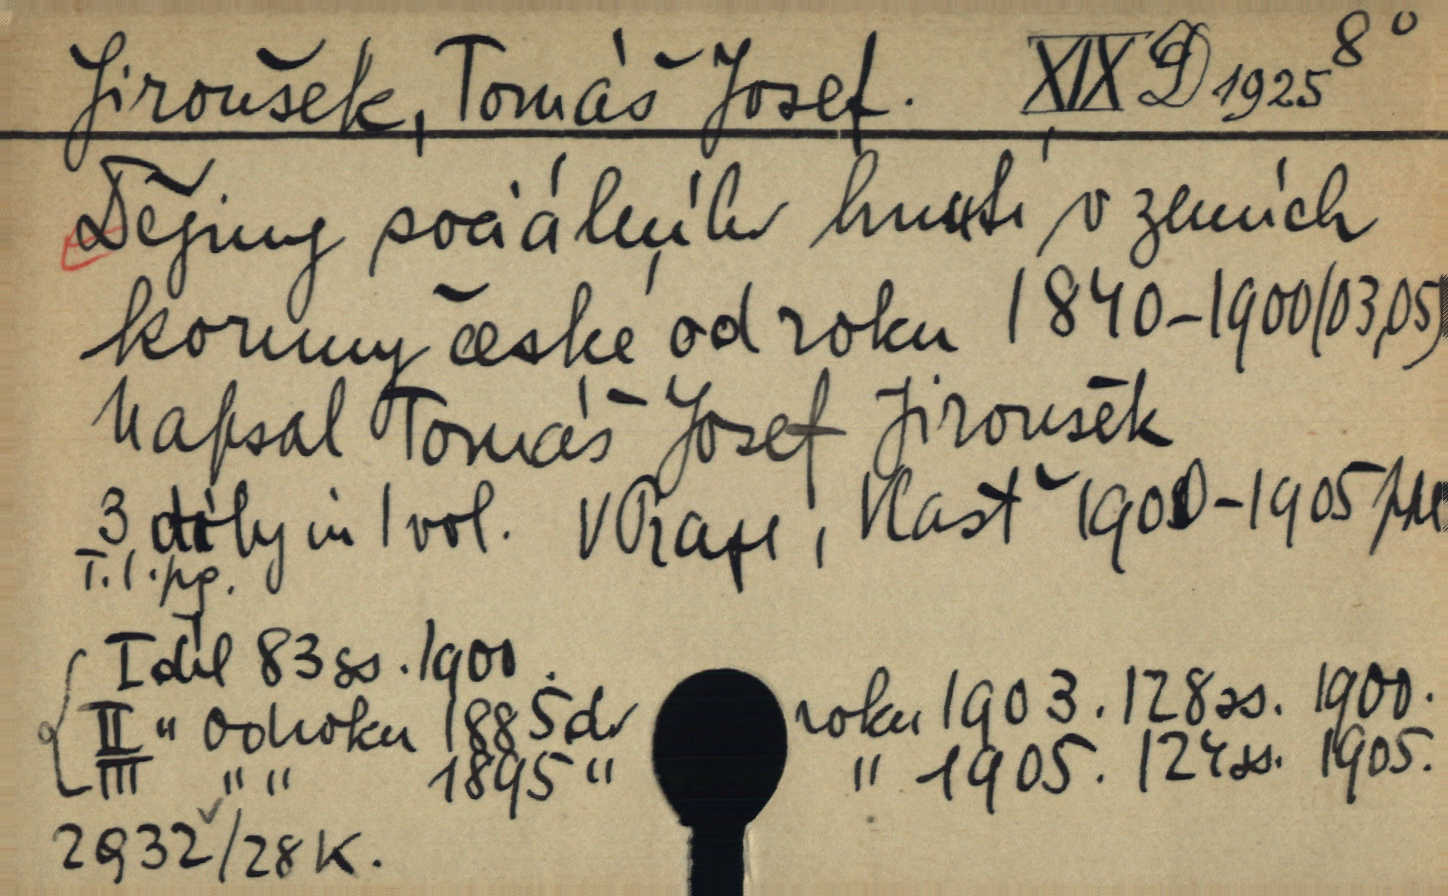 Jiroušek, Tomáš Josef. XIX D 1925 8°
Dějiny sociálního hnutí v zemích
koruny české od roku 1840-1900(03,05)
Napsal Tomáš Josef Jiroušek
3 díly in 1 vol. V Praze, Vlasť 1900-1905
T. 1. pg.
I díl 83 ss. 1900.
II " Od roku 1885 do roku 1903. 128 ss. 1900.
III " " 1895 " " 1905. 124 ss. 1905.
2932/28 K.